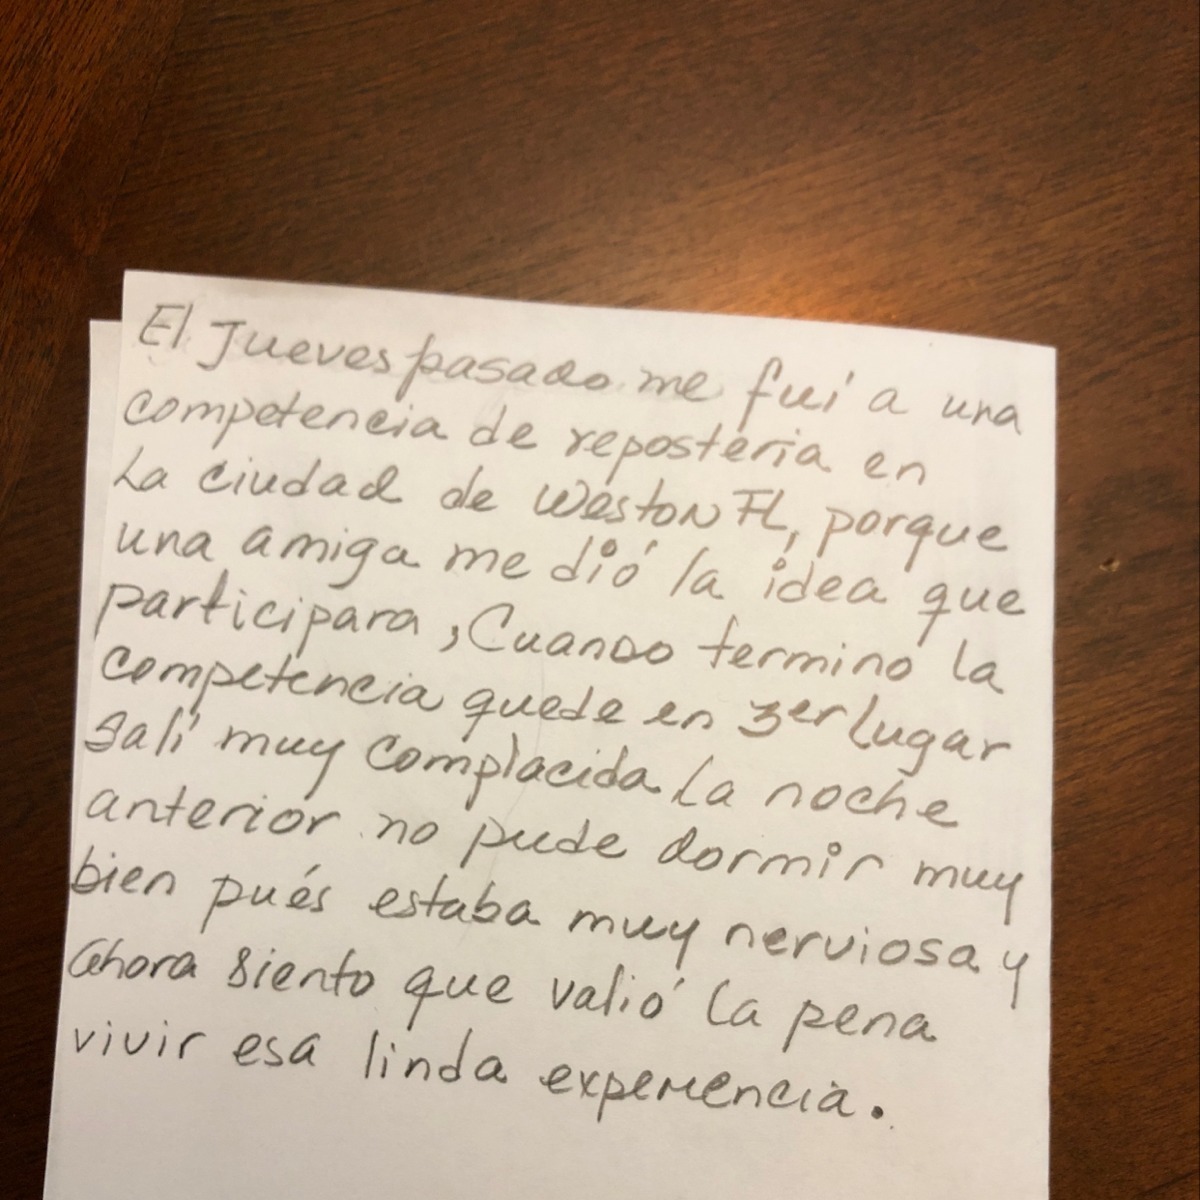 El Jueves pasado me fuí a una
competencia de repostería en
La ciudad de Weston FL, porque
una amiga me dió la idea que
participara, Cuando terminó la
competencia quede en 3er lugar
salí muy complacida La noche
anterior no pude dormir muy
bien pués estaba muy nerviosa y
ahora siento que valió la pena
vivir esa linda experiencia.